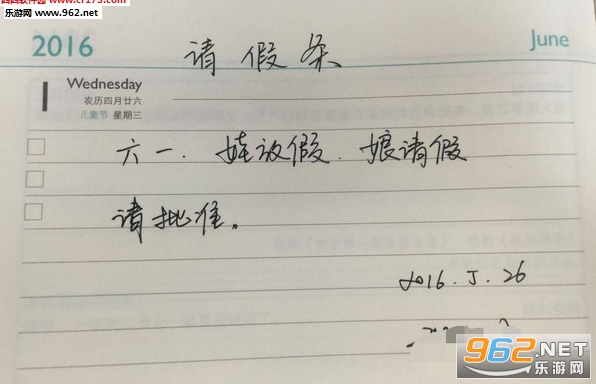 www.cr173.com
乐游网
www.962.net
2016
June
请假条
1
Wednesday
农历四月廿六
儿童节 星期三
六一. 娃放假. 娘请假
请批准。
2016.5.26
962.NET
乐游网